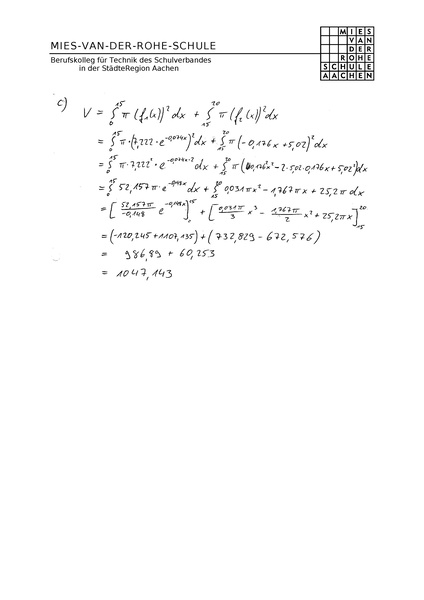 MIES-VAN-DER-ROHE-SCHULE
Berufskolleg für Technik des Schulverbandes
in der StädteRegion Aachen
MIES
VAN
DER
ROHE
SCHULE
AACHEN
c) V = ∫₀¹⁵ π (f₁(x))² dx + ∫₁₅²⁰ π (f₂(x))² dx
= ∫₀¹⁵ π·(7,222·e^(-0,074x))² dx + ∫₁₅²⁰ π (-0,176x + 5,02)² dx
= ∫₀¹⁵ π·7,222²·e^(-0,074x·2) dx + ∫₁₅²⁰ π (0,176²x² - 2·5,02·0,176x + 5,02²) dx
= ∫₀¹⁵ 52,157π·e^(-0,148x) dx + ∫₁₅²⁰ 0,031πx² - 1,767πx + 25,2π dx
= [52,157π/-0,148 e^(-0,148x)]₀¹⁵ + [0,031π/3 x³ - 1,767π/2 x² + 25,2πx]₁₅²⁰
= (-120,245 + 1107,135) + (732,829 - 672,576)
= 986,89 + 60,253
= 1047,143